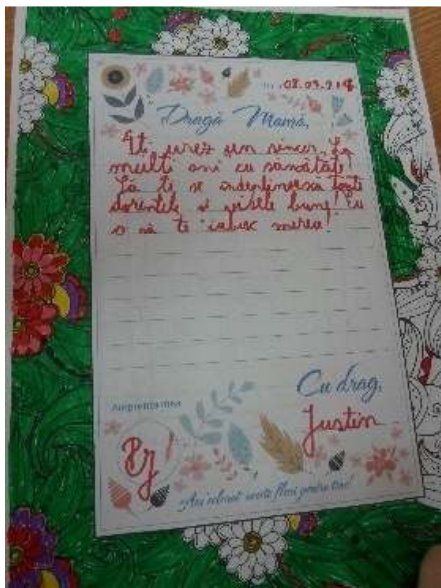 08.03.218
Dragă Mamă,
Îți urez un sincer „La
mulți ani cu sănătate!
Să ți se îndeplinească toate
dorințele și visele bune! Eu
o să te iubesc mereu!
Cu drag,
Justin
Amprenta mea
Am colorat aceste flori pentru tine!